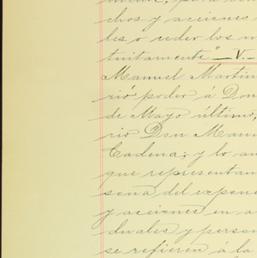 chos y acciones
les o ceder los
tuitamente" _V._
Manuel Martin
rió poder á Don
de Mayo último,
rio Don Man
Cadena; y lo au
que representan
seña del expone
y acciones en a
duales y person
se refieren á la